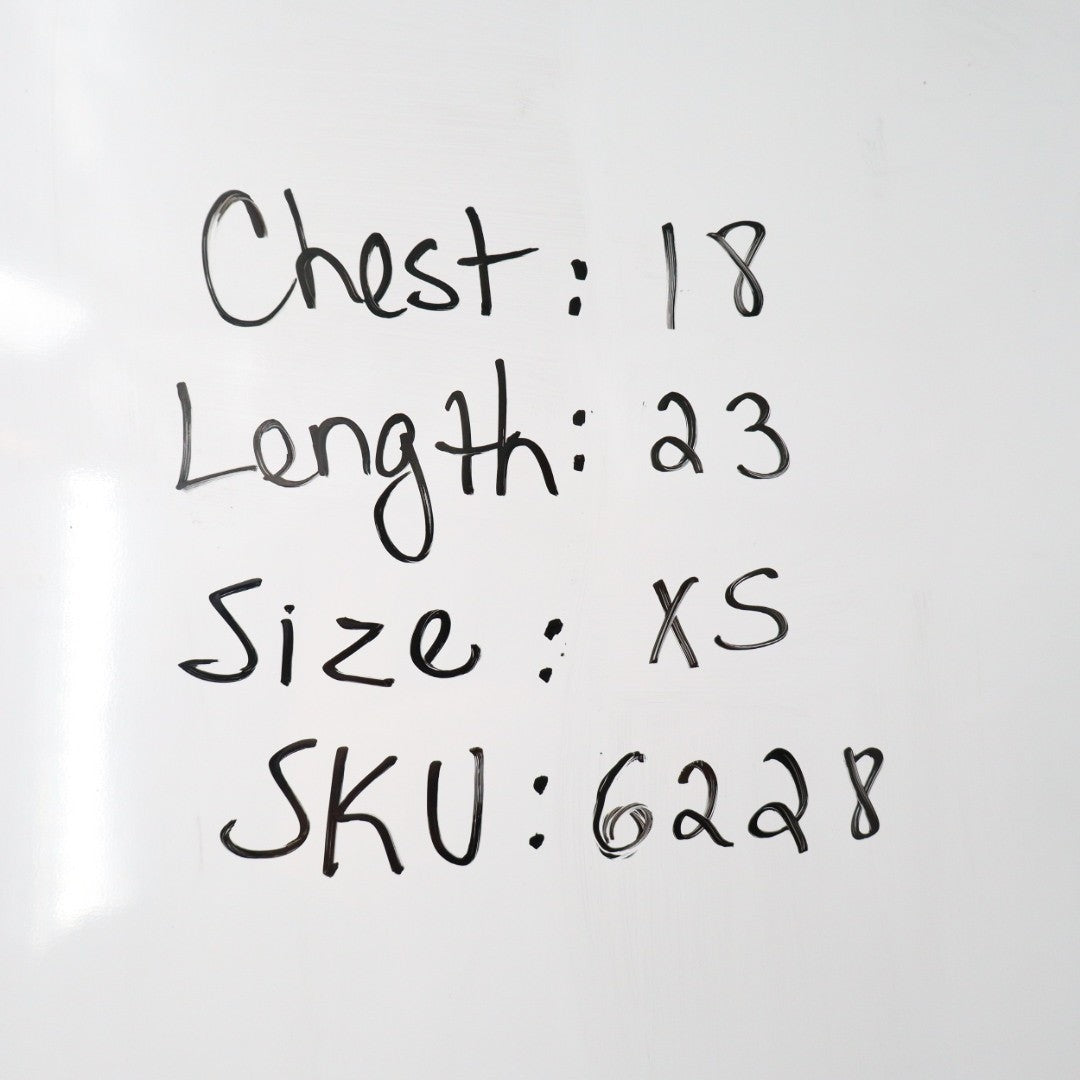 Chest: 18
Length: 23
Size: XS
SKU: 6228